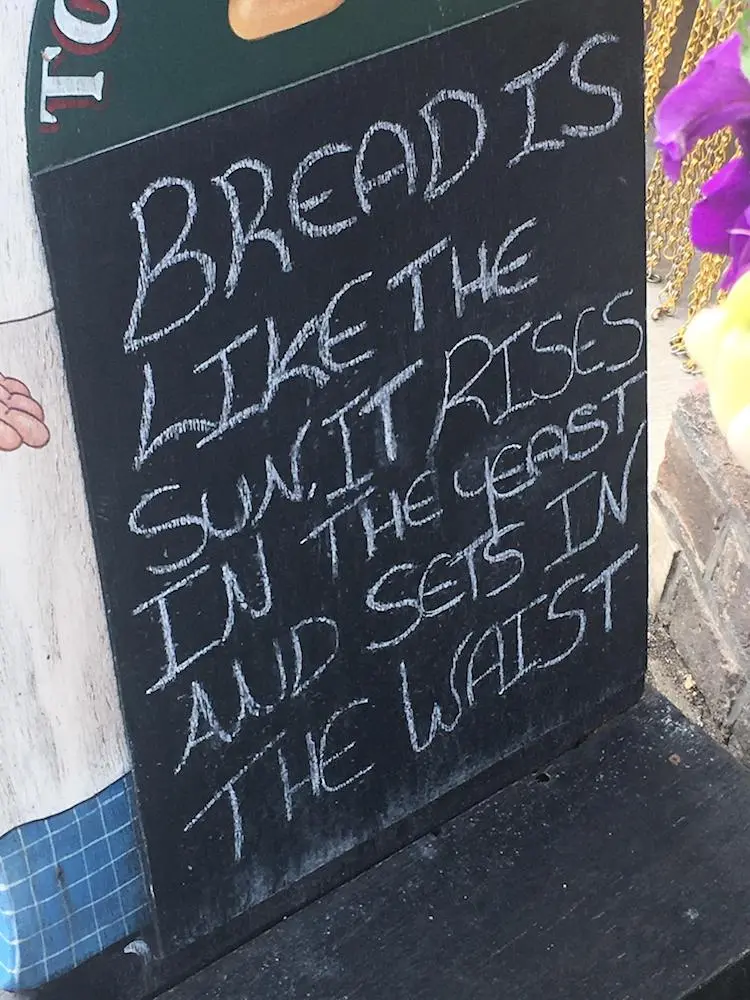 TO
BREAD IS
LIKE THE
SUN, IT RISES
IN THE YEAST
AND SETS IN
THE WAIST